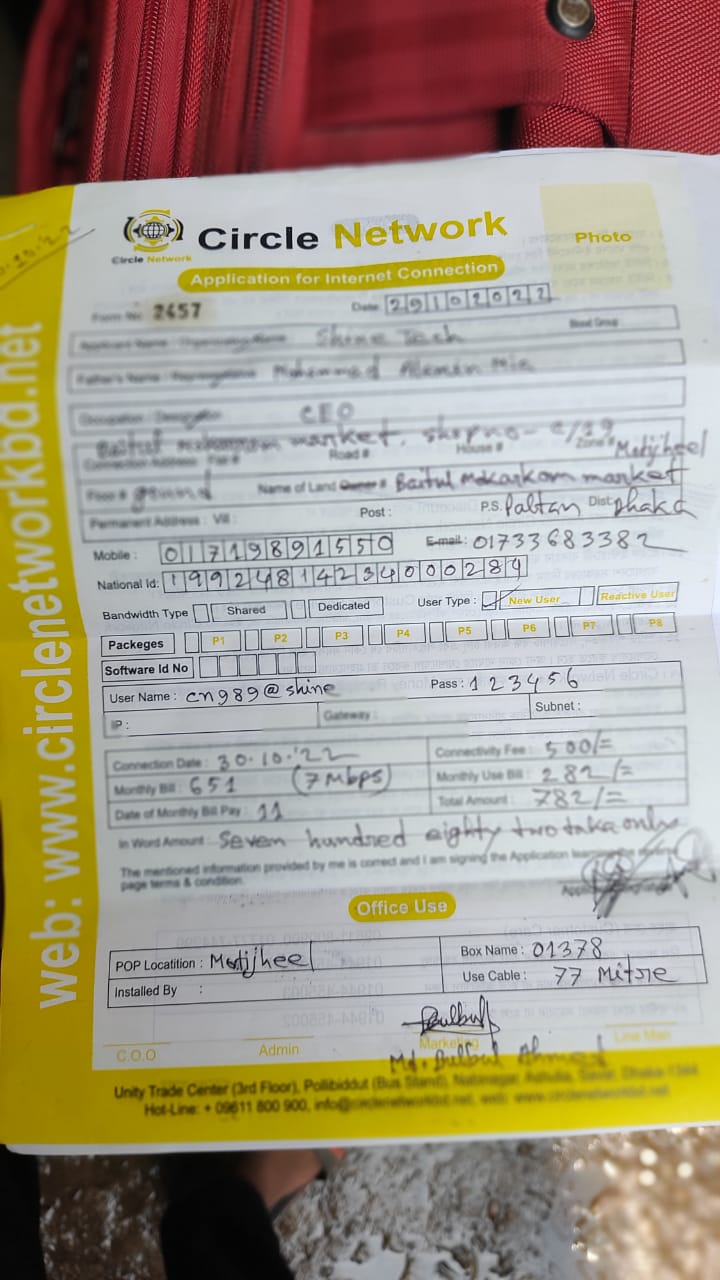 Circle Network
Circle Network
Application for Internet Connection
Photo
Form No 2457
Date: 29102022
Blood Group
Applicant Name / Organization Name Shine Tech
Father's Name / Mohammed Alamin Mia
Occupation / Designation CEO
Baitul mokarram market. shop no- c/19
Connection Address: Flat # Road # House # Zone # Motijheel
Floor # ground Name of Land Owner # Baitul Mokarram market
Permanent Address : Vill : Post : P.S. Paltan Dist: Dhaka
Mobile : 01719891550 E-mail : 01733683382
National Id: 19924814234000284
Bandwidth Type Shared Dedicated User Type : New User Reactive User
Packeges P1 P2 P3 P4 P5 P6 P7 P8
Software Id No
User Name : cn989@shine Pass : 123456
IP : Gateway : Subnet :
Connection Date : 30.10.'22 Connectivity Fee : 500/=
Monthly Bill : 651 (7 Mbps) Monthly Use Bill : 282/=
Date of Monthly Bill Pay : 11 Total Amount : 782/=
In Word Amount : Seven hundred eighty two taka only
The mentioned information provided by me is correct and I am signing the Application
page terms & condition.
Office Use
POP Locatition : Motijheel Box Name : 01378
Installed By : Use Cable : 77 Mitre
Bulbul
C.O.O Admin Marketing Line Man
Md. Bulbul Ahmed
Unity Trade Center (3rd Floor), Pollibiddut (Bus Stand), Nabinagar, Ashulia, Savar, Dhaka-1344
Hot-Line: + 09611 800 900, info@circlenetworkbd.net, web: www.circlenetworkbd.net
web: www.circlenetworkbd.net